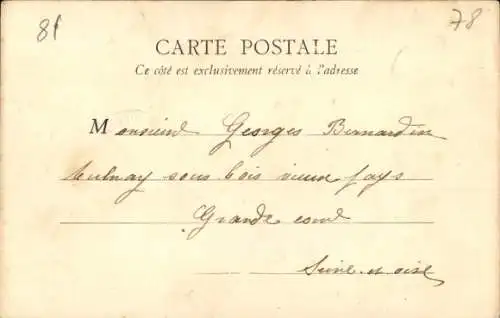 81
78
CARTE POSTALE
Ce côté est exclusivement réservé à l'adresse
Monsieur Georges Bernardin
Aulnay sous bois vieux pays
Grande cour
Seine et oise